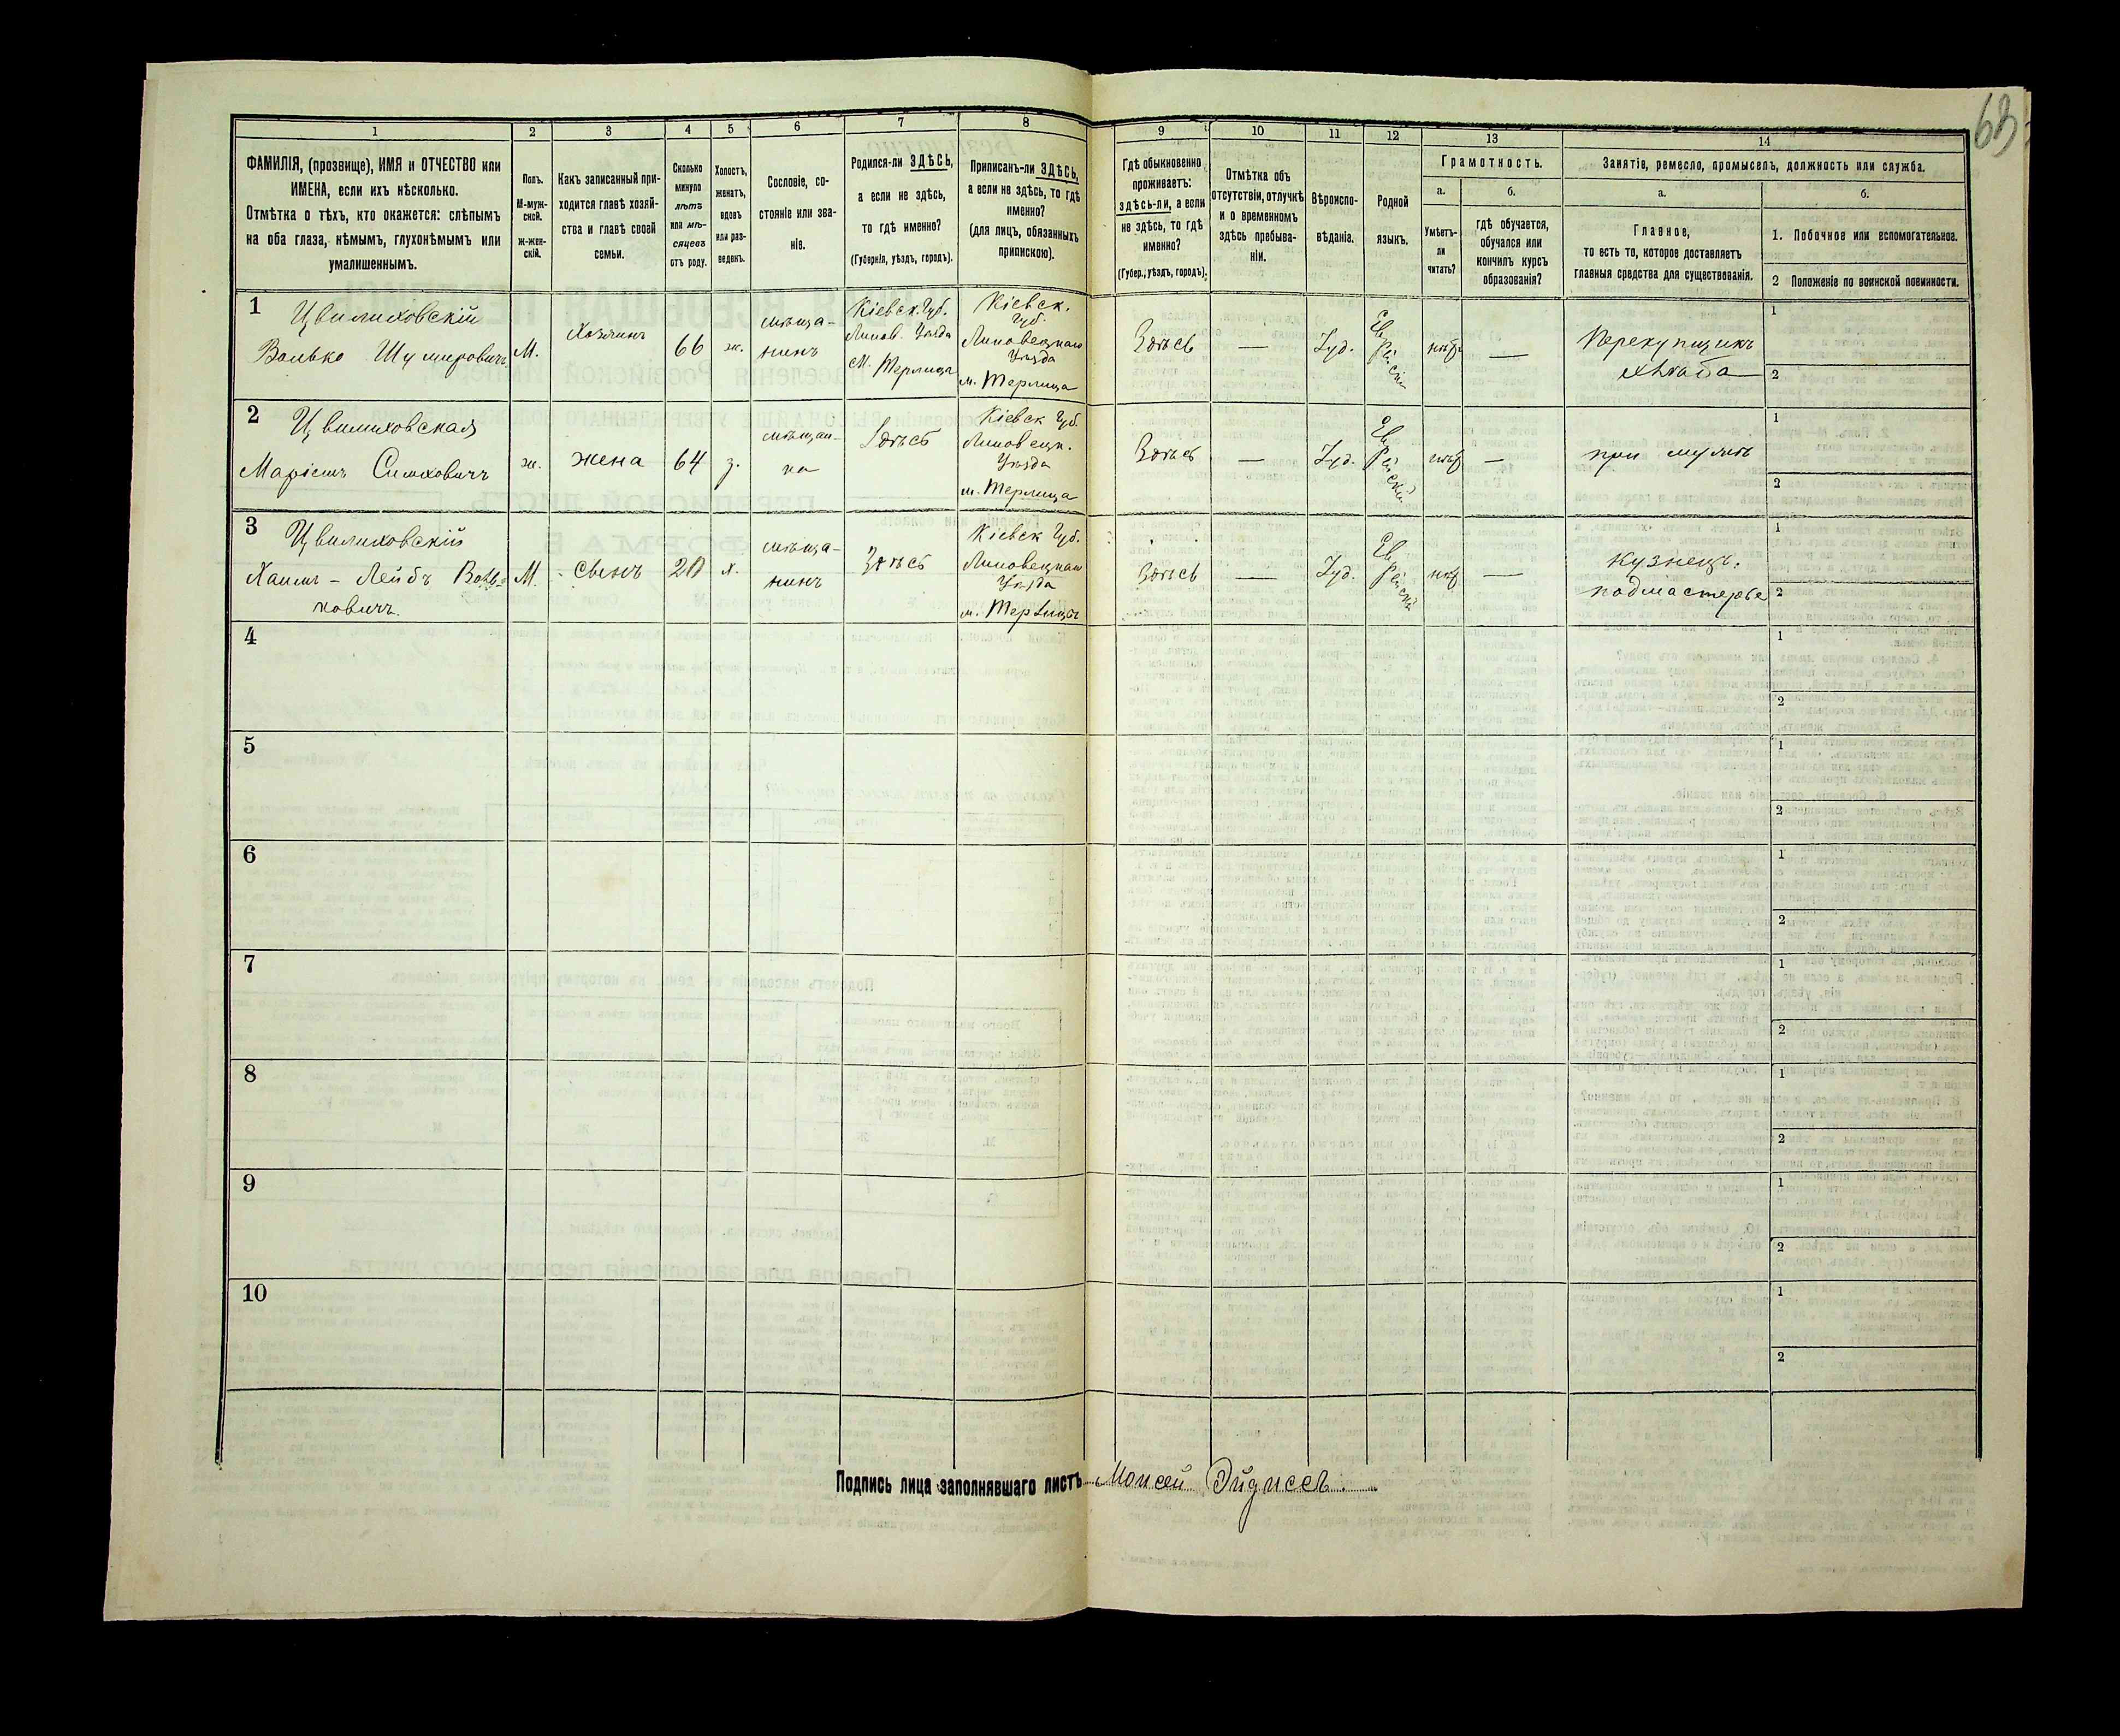 63
1 2 3 4 5 6 7 8 9 10 11 12 13 14
ФАМИЛІЯ, (прозвище), ИМЯ и ОТЧЕСТВО или
ИМЕНА, если ихъ нѣсколько.
Отмѣтка о тѣхъ, кто окажется: слѣпымъ
на оба глаза, нѣмымъ, глухонѣмымъ или
умалишеннымъ.
Полъ.
М-муж-
ской.
ж-жен-
скій.
Какъ записанный при-
ходится главѣ хозяй-
ства и главѣ своей
семьи.
Сколько
минуло
лѣтъ
или мѣ-
сяцевъ
отъ роду.
Холостъ,
женатъ,
вдовъ
или раз-
веденъ.
Сословіе, со-
стояніе или зва-
ніе.
Родился-ли ЗДѢСЬ,
а если не здѣсь,
то гдѣ именно?
(Губернія, уѣздъ, городъ).
Приписанъ-ли ЗДѢСЬ,
а если не здѣсь, то гдѣ
именно?
(для лицъ, обязанныхъ
припискою).
Гдѣ обыкновенно
проживаетъ:
здѣсь-ли, а если
не здѣсь, то гдѣ
именно?
(Губер., уѣздъ, городъ).
Отмѣтка объ
отсутствіи, отлучкѣ
и о временномъ
здѣсь пребыва-
ніи.
Вѣроиспо-
вѣданіе.
Родной
языкъ.
Грамотность.
а.
Умѣетъ-
ли
читать?
б.
гдѣ обучается,
обучался или
кончилъ курсъ
образованія?
Занятіе, ремесло, промыселъ, должность или служба.
а.
Главное,
то есть то, которое доставляетъ
главныя средства для существованія.
б.
1. Побочное или вспомогательное.
2 Положеніе по воинской повинности.
1
Цвилиховскій
Волько Шумировичъ
М.
Хозяинъ
66
ж.
мѣща-
нинъ
Кіевск. Губ.
Липов. Уѣзда
М. Терлица
Кіевск.
Губ.
Липовецкаго
Уѣзда
м. Терлица
Здѣсь
—
Іуд.
Ев
рей
скій
нѣтъ
—
Перекупщикъ
хлѣба
1
2
2
Цвилиховская
Маріемъ Симховичъ
ж.
жена
64
з.
мѣщан-
ка
Здѣсь
Кіевск Губ.
Липовецк.
Уѣзда
м. Терлица
Здѣсь
—
Іуд.
Ев
рей
скій
нѣтъ
—
при мужѣ
1
2
3
Цвилиховскій
Хаимъ - Лейбъ Воль-
ковичъ.
М.
Сынъ
20
х.
мѣща-
нинъ
Здѣсь
Кіевск Губ.
Липовецкаго
Уѣзда
м. Терлица
Здѣсь
—
Іуд.
Ев
рей
скій
нѣтъ
—
кузнецъ.
подмастерье
1
2
4
1
2
5
1
2
6
1
2
7
1
2
8
1
2
9
1
2
10
1
2
Подпись лица заполнявшаго листъ Моисей